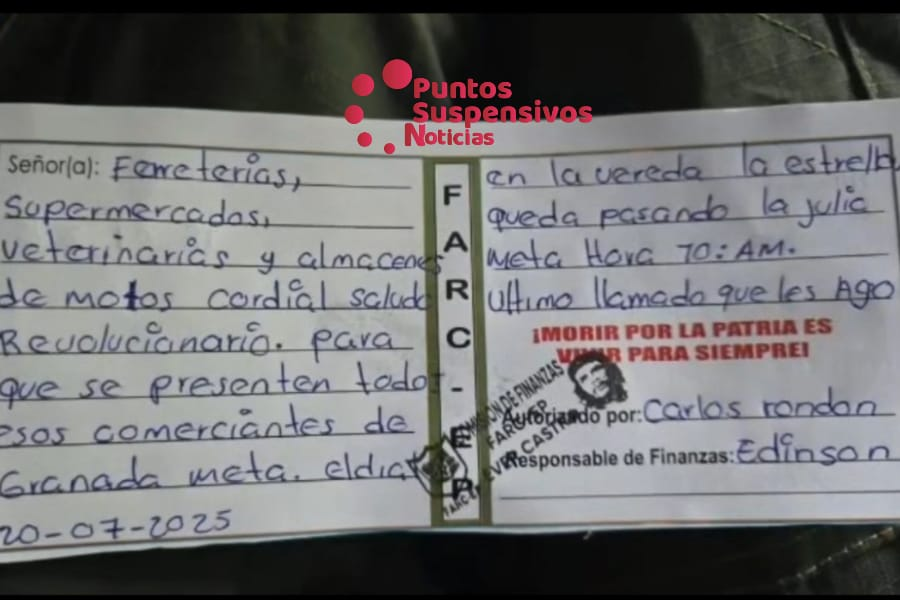 Puntos
Suspensivos
Noticias
Señor(a): Ferreterias,
Supermercados,
veterinarias y almacenes
de motos cordial saludo
Revolucionario. para
que se presenten todos
esos comerciantes de
Granada meta. eldia
20-07-2025
FARC-EP
en la vereda la estrella
queda pasando la julia
meta Hora 10:AM.
Ultimo llamado que les Ago
¡MORIR POR LA PATRIA ES
VIVIR PARA SIEMPRE!
COMISION DE FINANZAS
FARC-EP
Autorizado por: Carlos rondon
Responsable de Finanzas: Edinson